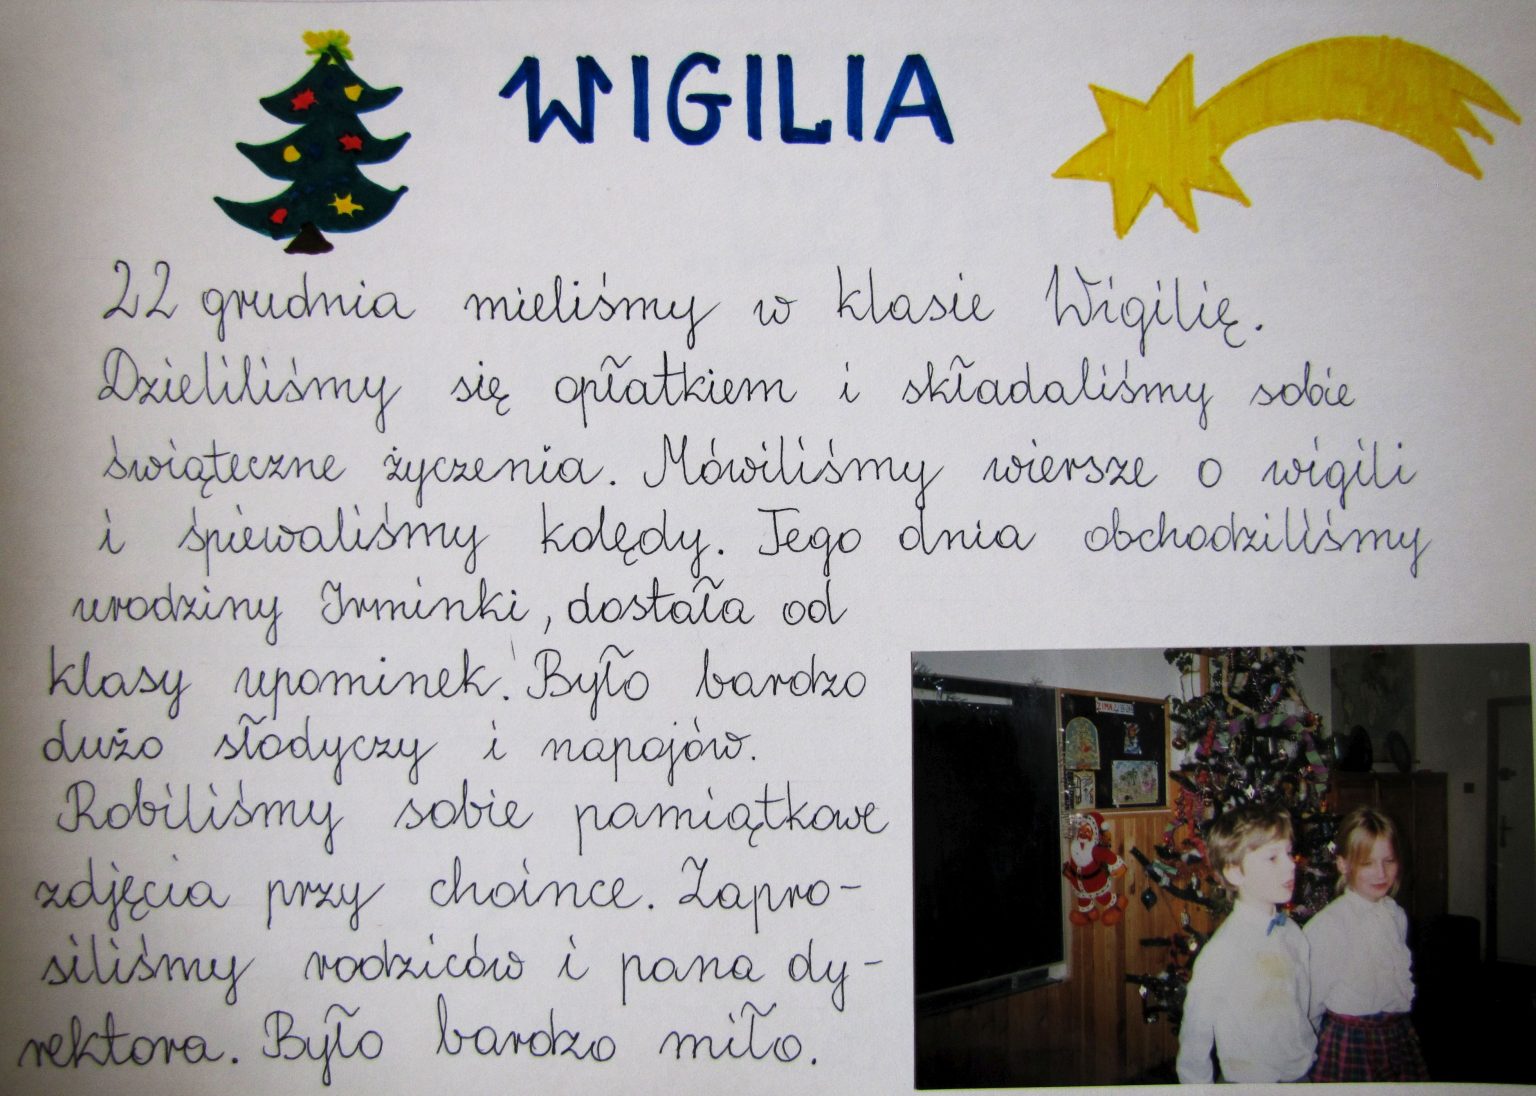 WIGILIA
22 grudnia mieliśmy w klasie Wigilię.
Dzieliliśmy się opłatkiem i składaliśmy sobie
świąteczne życzenia. Mówiliśmy wiersze o wigili
i śpiewaliśmy kolędy. Tego dnia obchodziliśmy
urodziny Irminki, dostała od
klasy upominek. Było bardzo
dużo słodyczy i napojów.
Robiliśmy sobie pamiątkowe
zdjęcia przy choince. Zapro-
siliśmy rodziców i pana dy-
rektora. Było bardzo miło.
ZIMA